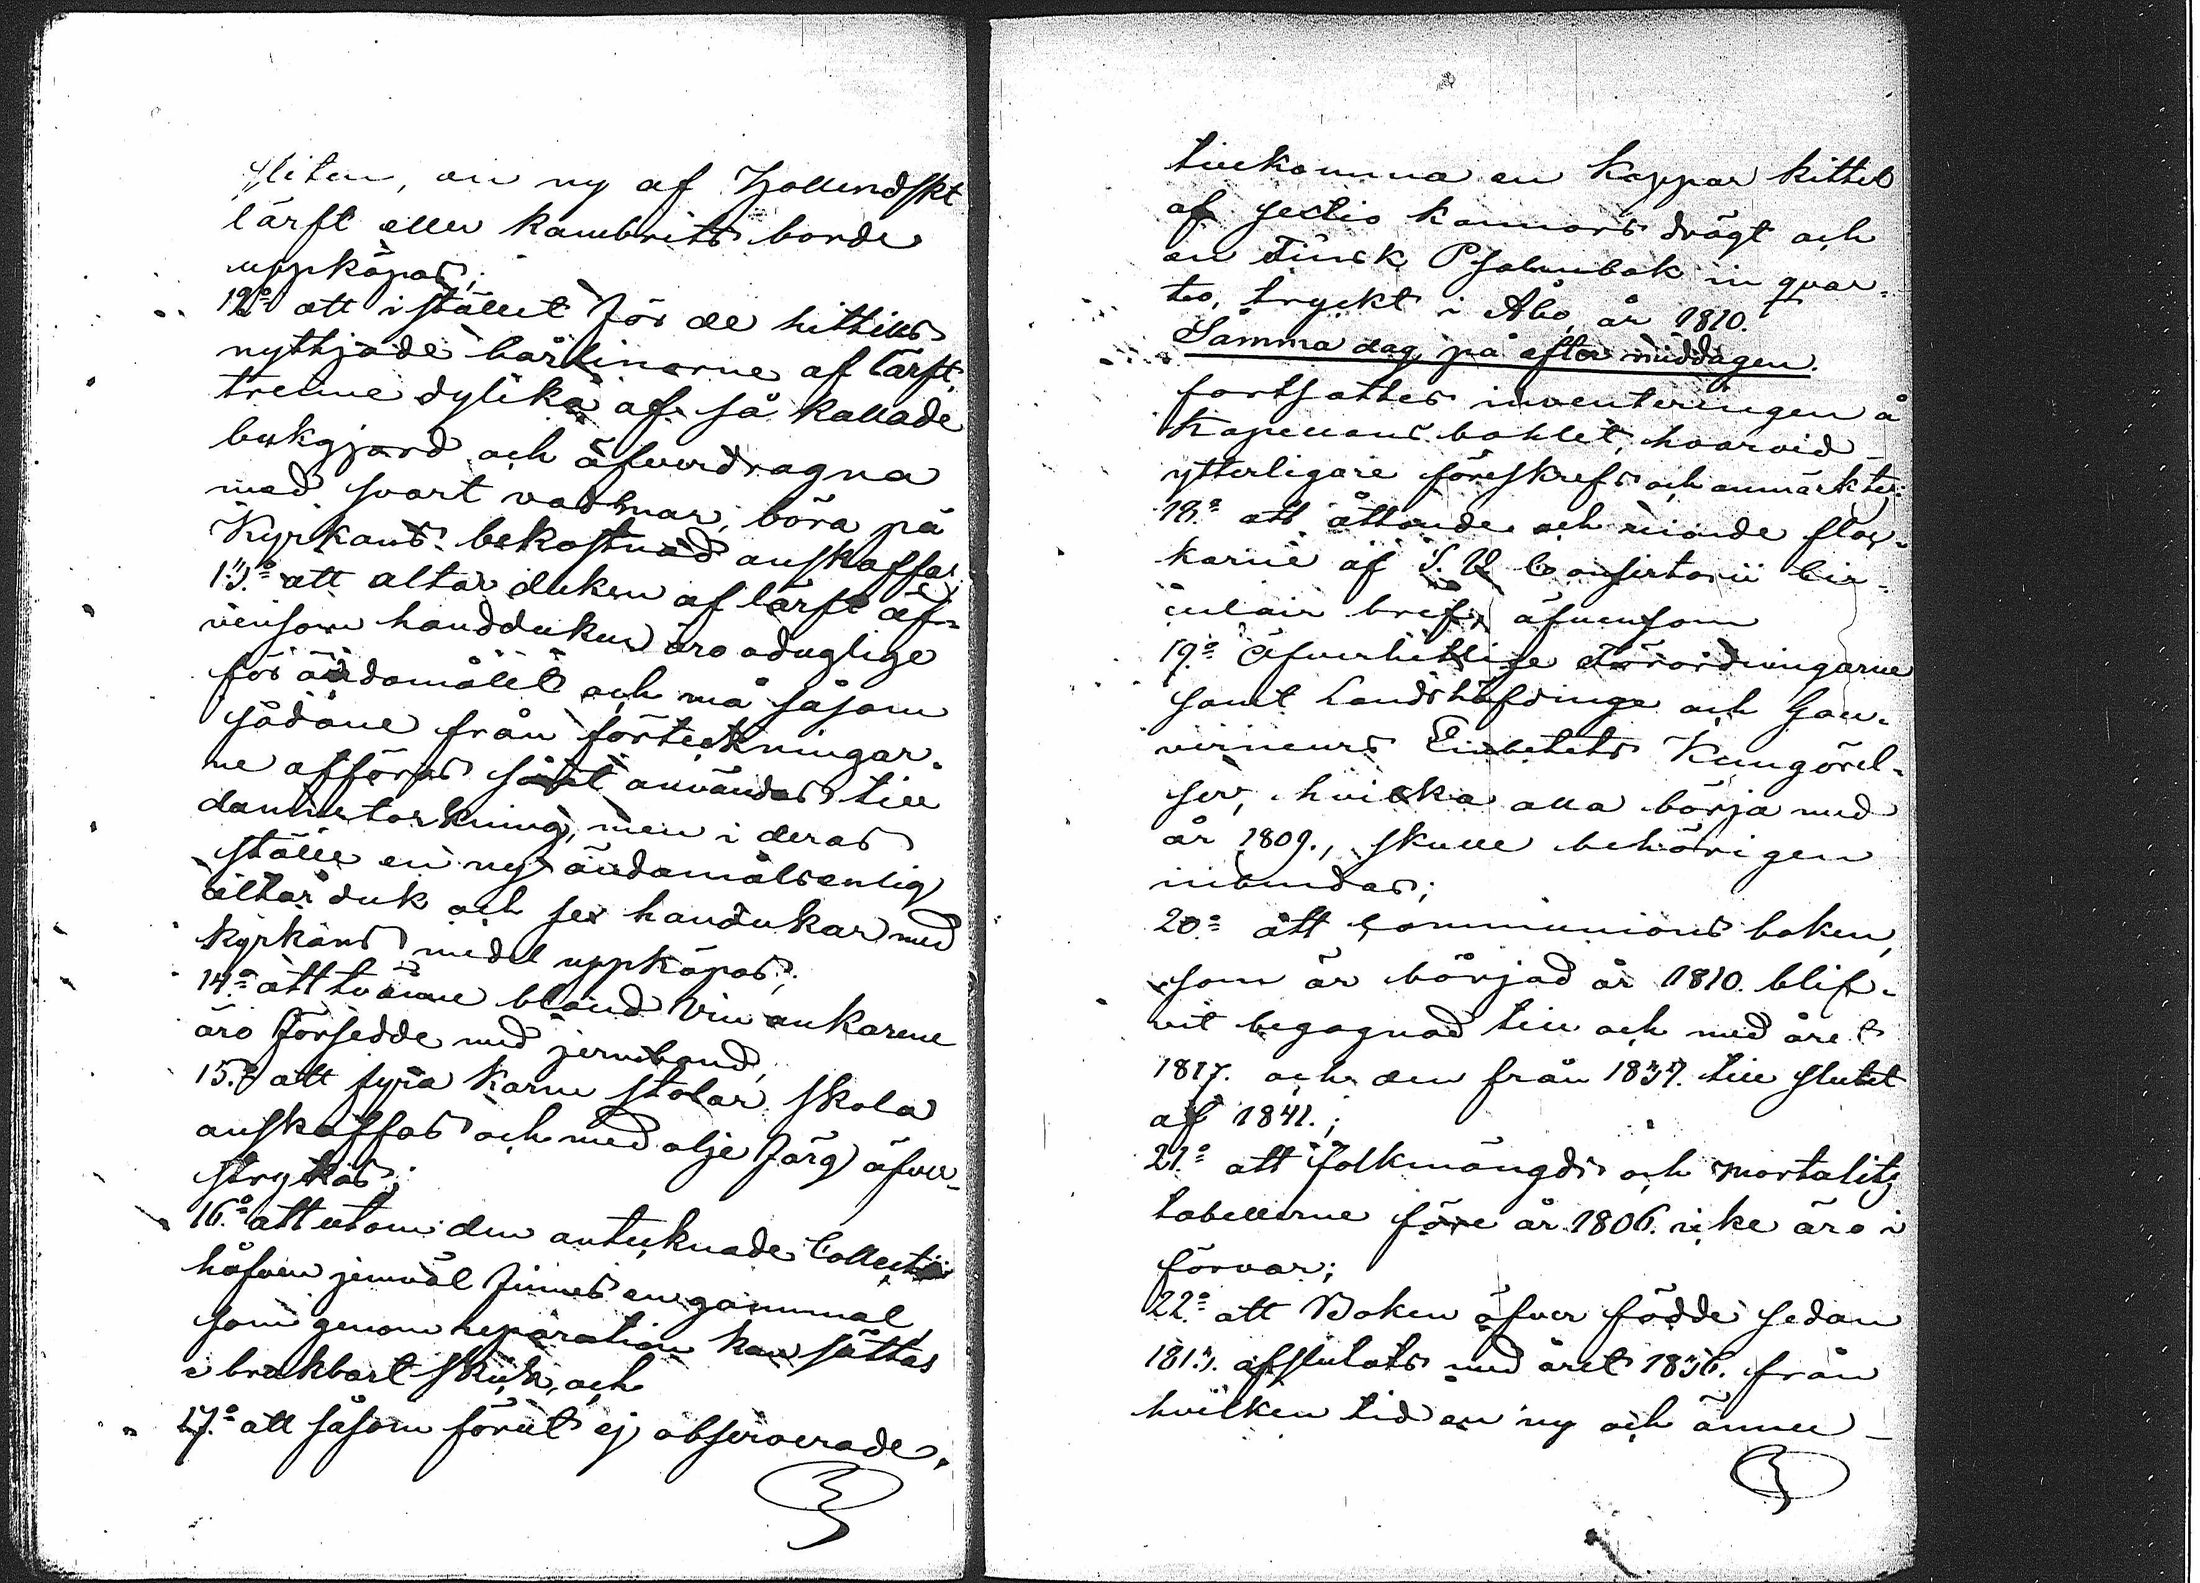 sliten, en ny af Hollendskt
lärft eller kambriks borde
uppköpas;
12:o att i stället för de hittills
nyttjade bårlinorne af lärft,
trenne dylika af så kallade
bukgjord och öfverdragna
med svart vadmar, böra på
Kyrkans bekostnad anskaffas
13:o att altar duken af lärft äf=
vensom handduken äro oduglige
för ändamålet och må såsom
sådane från förteckningar=
ne afföras samt användas till
dammtorkning, men i deras
ställe en ny ändamålsenlig
altar duk och sex handukar med
Kyrkans medel uppköpas;
14:o att tvänne bland Vin ankarene
äro försedde med jernband,
15:o att fyra Karm stolar skola
anskaffas och med olje färg öfver=
strykas;
16:o att utom den antecknade Collect
håfven jemväl finnes en gammal
som genom reparation kan sättas
i brukbart skick, och
17:o att såsom förut ej observerade,
tillkomma en koppar kittel
af sextio kannors drägt och
en Finsk Psalmbok in qvar=
to, tryckt i Åbo år 1810.
Samma dag på efter middagen.
fortsattes inventeringen å
Kapellans bohlet, hvarvid
ytterligare föreskrefs och anmärktes:
18:o att åttonde och nionde floc=
karne af S. V. Consistorii Cir=
culair bref, äfvensom
19:o Öfverhetlige Förordningarne
samt Landshöfdinge och Gou=
verneurs Embetets Kungörel=
ser, hvilka alla börja med
år 1809., skulle behörigen
inbindas;
20:o att Communions boken,
som är börjad år 1810. blif=
vit begagnad till och med året
1817. och den från 1837. till slutet
af 1841.;
21:o att folkmängds och Mortalitets
tabellerne före år 1806. icke äro i
förvar;
22:o att Boken öfver födde sedan
1813. afslutats med året 1836. från
hvilken tid en ny och ännu